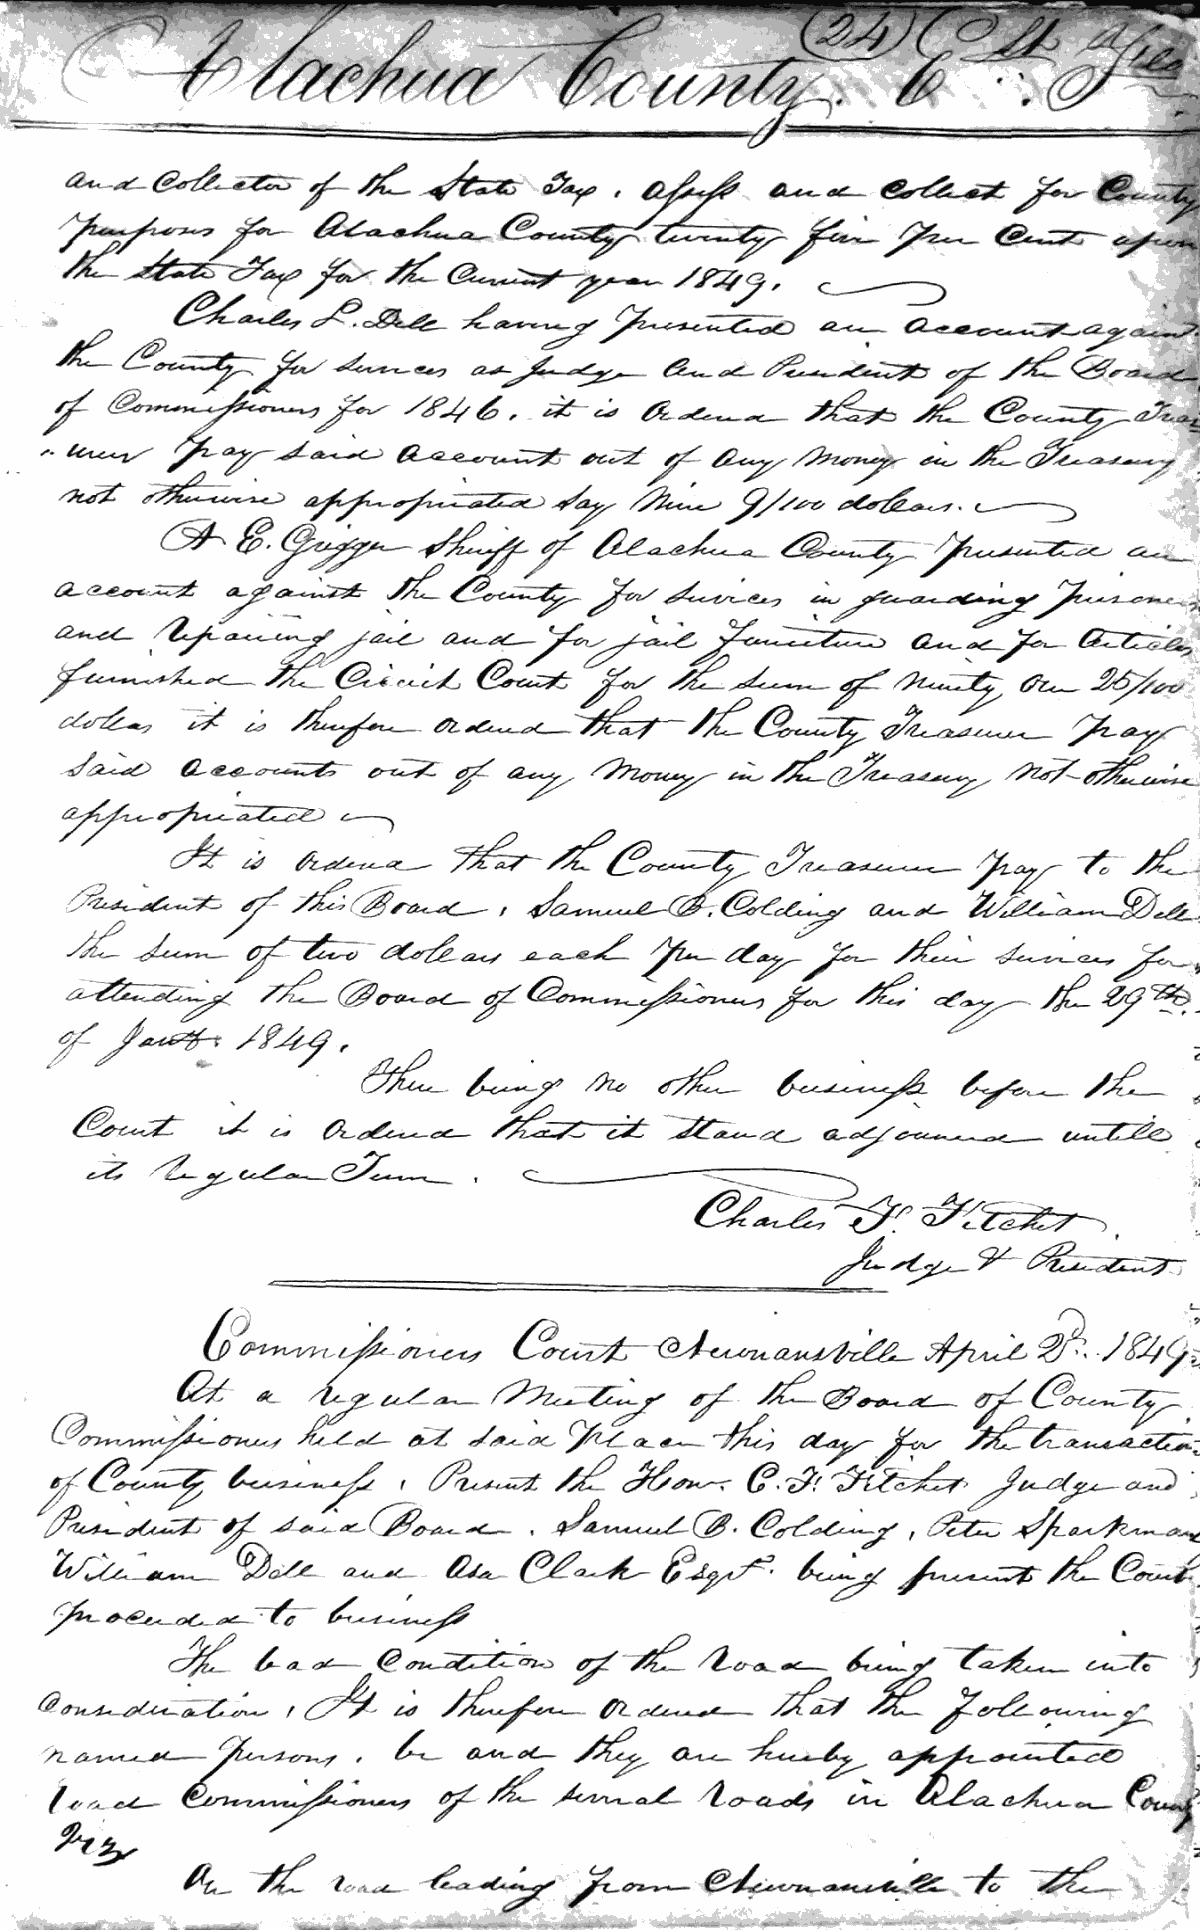 (24)
Alachua County. E.. F
and Collector of the State Tax. assess and Collect for County
purposes for Alachua County twenty five per Cent upon
the State Tax for the Current year 1849.
Charles L. Dell having presented an account against
the County for services as Judge and President of the Board
of Commissioners for 1846. it is Ordered that the County Treas
"urer pay said account out of any money in the Treasury
not otherwise appropriated say Nine 9/100 dollars.
A E. Grigger Sheriff of Alachua County presented an
account against the County for services in guarding prisoners
and repairing jail and for jail furniture and for Articles
furnished the Circuit Court for the sum of Ninety One 25/100
dollars it is therefore ordered that the County Treasurer pay
said accounts out of any money in the Treasury not otherwise
appropriated
It is Ordered that the County Treasurer pay to the
President of this Board, Samuel B. Colding and William Dell
the sum of two dollars each per day for their services for
attending the Board of Commissioners for this day the 29th.
of Jany. 1849.
There being no other business before the
Court it is Ordered that it stand adjourned untill
its regular Term.
Charles F. Fitchet.
Judge & President
Commissioners Court Newnansville April 2d. 1849
At a regular Meeting of the Board of County
Commissioners held at said Place this day for the transaction
of County business, Present the Hon. C. F. Fitchet Judge and
President of said Board. Samuel B. Colding, Peter Sparkman
William Dell and Asa Clark Esqrs. being present the Court
proceeded to business
The bad Condition of the road being taken into
Consideration, It is therefore Ordered that the following
named persons, be and they are hereby appointed
road Commissioners of the several roads in Alachua County
Viz
On the road leading from Newnansville to the